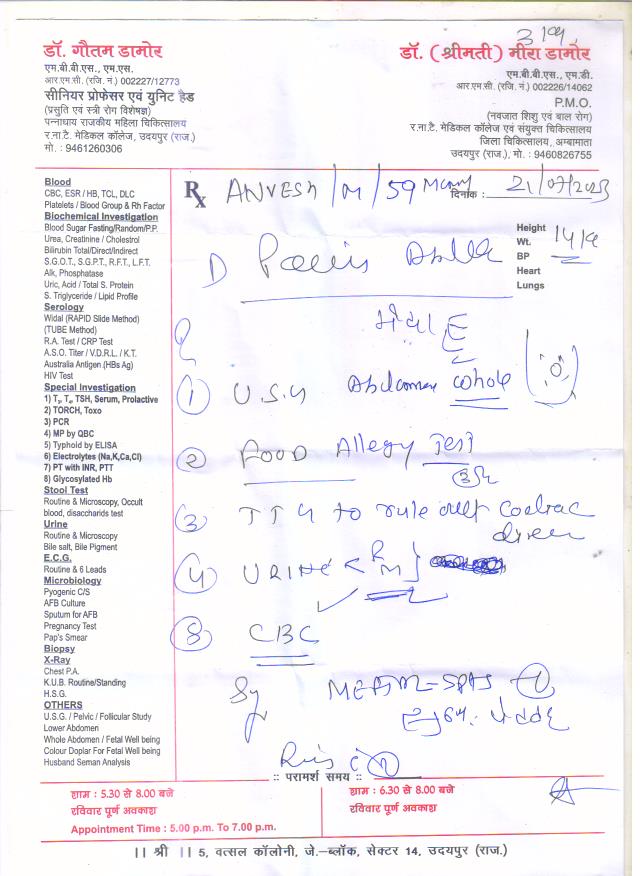 डॉ. गौतम डामोर
एम.बी.बी.एस., एम.एस.
आर.एम.सी. (रजि. नं.) 002227/12773
सीनियर प्रोफेसर एवं युनिट हैड
(प्रसुति एवं स्त्री रोग विशेषज्ञ)
पन्नाधाय राजकीय महिला चिकित्सालय
र.ना.टै. मेडिकल कॉलेज, उदयपुर (राज.)
मो. : 9461260306
डॉ. (श्रीमती) मीरा डामोर
एम.बी.बी.एस., एम.डी.
आर.एम.सी. (रजि. नं.) 002226/14062
P.M.O.
(नवजात शिशु एवं बाल रोग)
र.ना.टै. मेडिकल कॉलेज एवं संयुक्त चिकित्सालय
जिला चिकित्सालय, अम्बामाता
उदयपुर (राज.), मो. : 9460826755
Blood
CBC, ESR / HB, TCL, DLC
Platelets / Blood Group & Rh Factor
Biochemical Investigation
Blood Sugar Fasting/Random/P.P.
Urea, Creatinine / Cholestrol
Bilirubin Total/Direct/Indirect
S.G.O.T., S.G.P.T., R.F.T., L.F.T.
Alk, Phosphatase
Uric, Acid / Total S. Protein
S. Triglyceride / Lipid Profile
Serology
Widal (RAPID Slide Method)
(TUBE Method)
R.A. Test / CRP Test
A.S.O. Titer / V.D.R.L. / K.T.
Australia Antigen (HBs Ag)
HIV Test
Special Investigation
1) T₃, T₄, TSH, Serum, Prolactive
2) TORCH, Toxo
3) PCR
4) MP by QBC
5) Typhoid by ELISA
6) Electrolytes (Na,K,Ca,Cl)
7) PT with INR, PTT
8) Glycosylated Hb
Stool Test
Routine & Microscopy, Occult
blood, disaccharids test
Urine
Routine & Microscopy
Bile salt, Bile Pigment
E.C.G.
Routine & 6 Leads
Microbiology
Pyogenic C/S
AFB Culture
Sputum for AFB
Pregnancy Test
Pap's Smear
Biopsy
X-Ray
Chest P.A.
K.U.B. Routine/Standing
H.S.G.
OTHERS
U.S.G. / Pelvic / Follicular Study
Lower Abdomen
Whole Abdomen / Fetal Well being
Colour Doplar For Fetal Well being
Husband Seman Analysis
Rx ANVESH / M / 59 दिनांक : 21/07/2023
Height
Wt.
BP
Heart
Lungs
① U.S.G Abdomen whole
② FOOD Allergy Test
③ TTG to rule out
④ URINE < R M
CBC
:: परामर्श समय ::
शाम : 5.30 से 8.00 बजे
रविवार पूर्ण अवकाश
Appointment Time : 5.00 p.m. To 7.00 p.m.
शाम : 6.30 से 8.00 बजे
रविवार पूर्ण अवकाश
|| श्री || 5, वत्सल कॉलोनी, जे.-ब्लॉक, सेक्टर 14, उदयपुर (राज.)